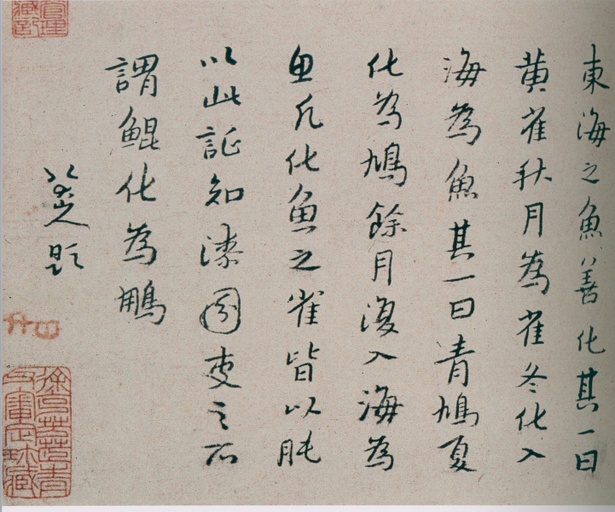 東海之魚善化其一曰
黄雀秋月為雀冬化入
海為魚其一曰青鳩夏
化為鳩餘月復入海為
魚凡化魚之雀皆以肫
以此証知漆園吏之所
謂鯤化為鵬
八大山人題